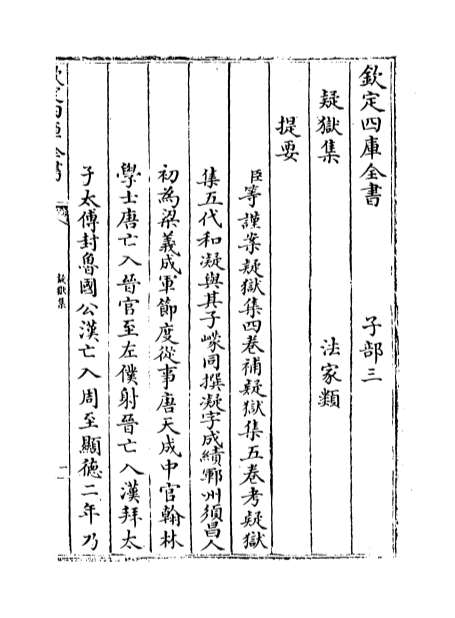 欽定四庫全書　子部三
疑獄集　法家類
提要
臣等謹案疑獄集四卷補疑獄集五卷考疑獄
集五代和凝與其子㠓同撰凝字成績鄆州須昌人
初為梁義成軍節度從事唐天成中官翰林
學士唐亡入晉官至左僕射晉亡入漢拜太
子太傅封魯國公漢亡入周至顯德二年乃
欽定四庫全書
疑獄集
一